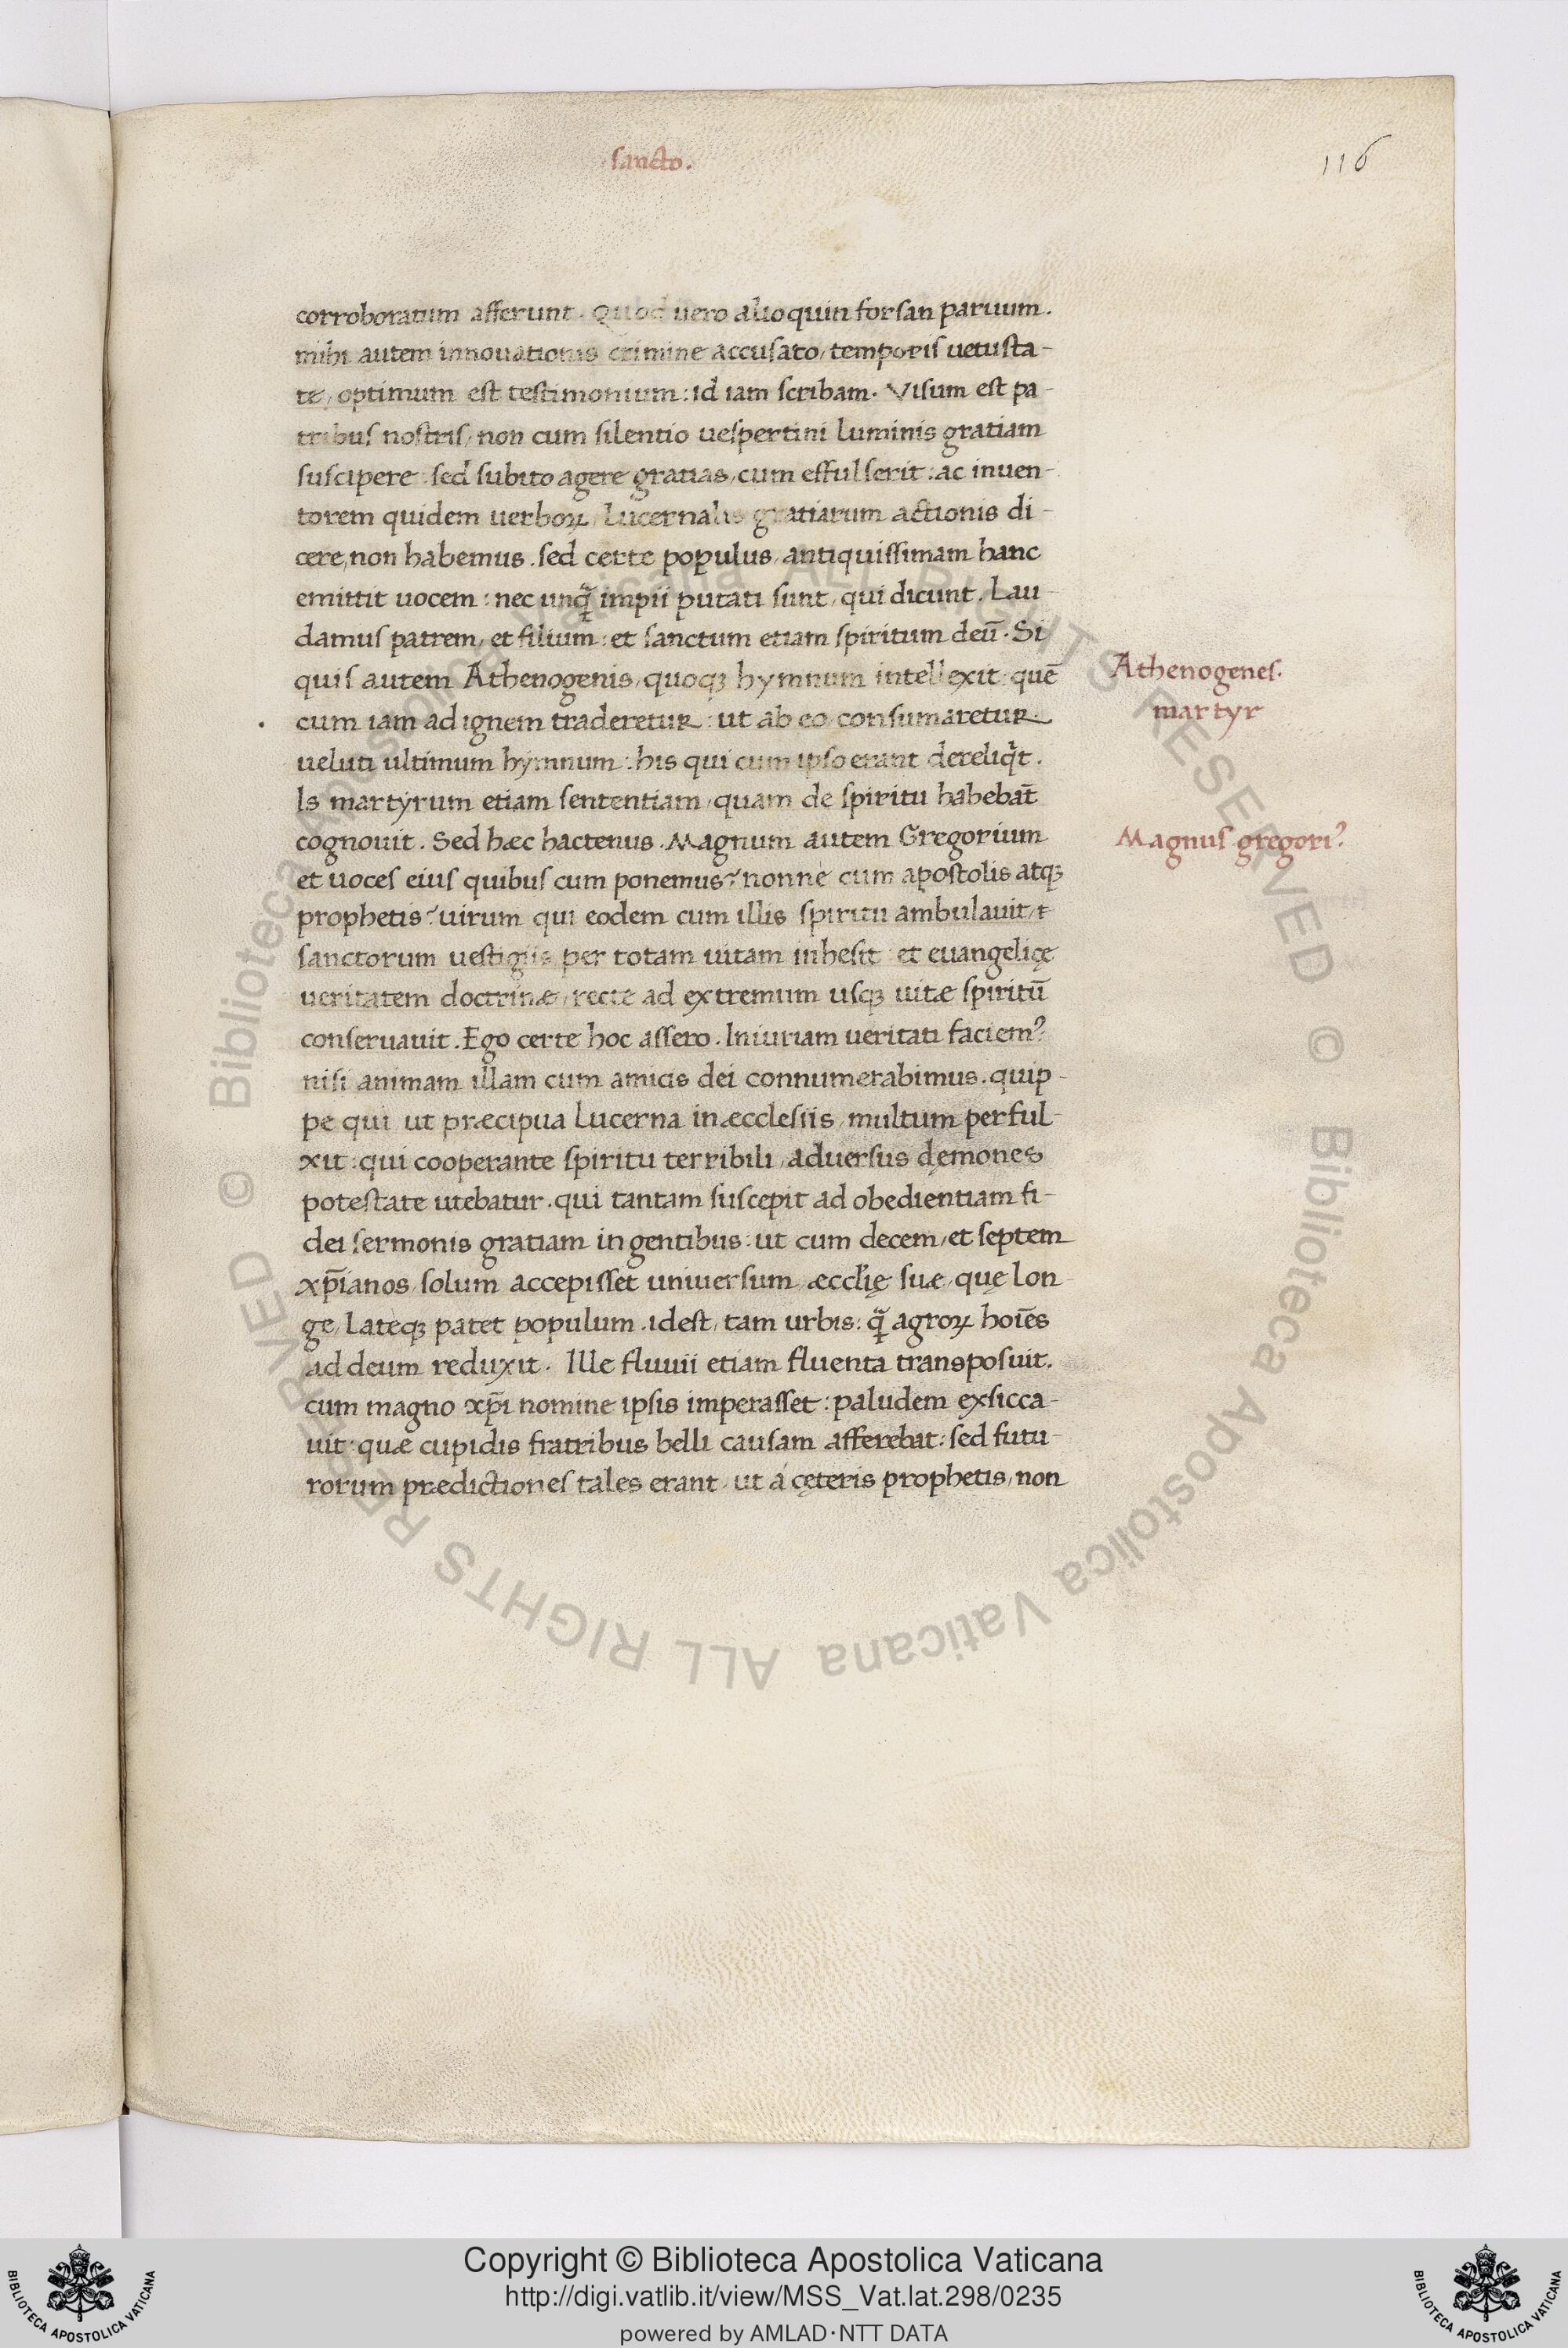 sancto.
116
corroboratum afferunt. Quod uero alioquin forsan paruum.
mihi autem innouationis crimine accusato, temporis uetusta-
te, optimum est testimonium: id iam scribam. Visum est pa-
tribus nostris, non cum silentio uespertini luminis gratiam
suscipere: sed subito agere gratias, cum effulserit: ac inuen-
torem quidem uerboꝝ, lucernalis gratiarum actionis di-
cere, non habemus. sed certe populus, antiquissimam hanc
emittit uocem: nec unq̃ impii putati sunt, qui dicunt. Lau
damus patrem, et filium: et sanctum etiam spiritum deū. Si
quis autem Athenogenis, quoqȝ hymnum intellexit: quē
cum iam ad ignem traderetur: ut ab eo consumaretur.
ueluti ultimum hymnum: his qui cum ipso erant dereliq̃t.
Is martyrum etiam sententiam, quam de spiritu habebāt
cognouit. Sed hæc hactenus. Magnum autem Gregorium
et uoces eius quibus cum ponemus? nonne cum apostolis atqȝ
prophetis? uirum qui eodem cum illis spiritu ambulauit, &
sanctorum uestigiis per totam uitam inhesit: et euangelicę
ueritatem doctrinæ, recte ad extremum usqȝ uitæ spiritū
conseruauit. Ego certe hoc assero. Iniuriam ueritati faciemꝰ
nisi animam illam cum amicis dei connumerabimus. quip-
pe qui ut præcipua lucerna in æcclesiis, multum perful-
xit: qui cooperante spiritu terribili, aduersus dęmones
potestate utebatur. qui tantam suscepit ad obedientiam fi-
dei sermonis gratiam in gentibus: ut cum decem, et septem
xp̄ianos, solum accepisset uniuersum, æcclię suæ, quę lon-
ge, lateqȝ patet populum. idest, tam urbis: q̃ agroꝝ hoīes
ad deum reduxit. Ille fluuii etiam fluenta transposuit.
cum magno xp̄i nomine ipsis imperasset: paludem exsicca-
uit: quæ cupidis fratribus belli causam afferebat: sed futu-
rorum prædictiones tales erant, ut á cęteris prophetis, non
Athenogenes.
martyr
Magnus gregoriꝰ
© Biblioteca Apostolica Vaticana ALL RIGHTS RESERVED
© Biblioteca Apostolica Vaticana ALL RIGHTS RESERVED
BIBLIOTECA APOSTOLICA VATICANA
Copyright © Biblioteca Apostolica Vaticana
http://digi.vatlib.it/view/MSS_Vat.lat.298/0235
powered by AMLAD·NTT DATA
BIBLIOTECA APOSTOLICA VATICANA